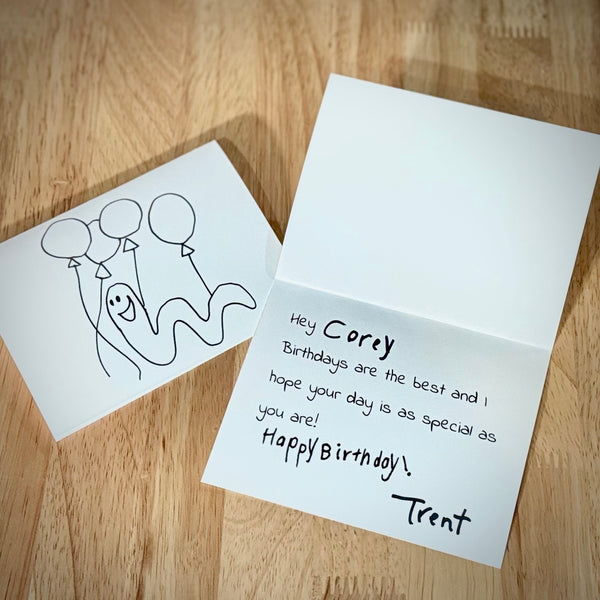 Hey Corey
Birthdays are the best and I
hope your day is as special as
you are!
Happy Birthday!
Trent